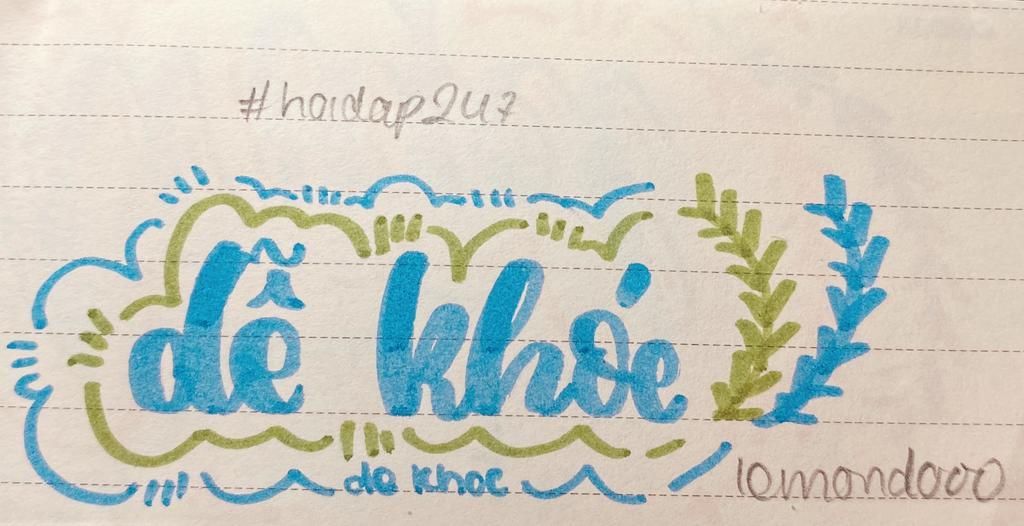 #hoidap247
dễ khóc
de khoc
lemondooo